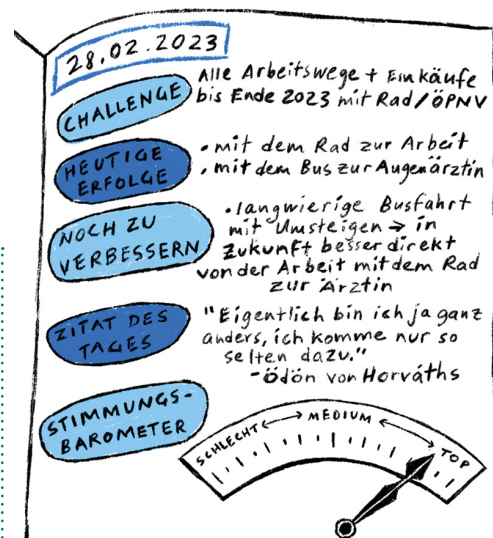 28.02.2023
CHALLENGE
Alle Arbeitswege + Einkäufe
bis Ende 2023 mit Rad/ÖPNV
HEUTIGE
ERFOLGE
• mit dem Rad zur Arbeit
• mit dem Bus zur Augenärztin
NOCH ZU
VERBESSERN
• langwierige Busfahrt
mit Umsteigen → in
Zukunft besser direkt
von der Arbeit mit dem Rad
zur Ärztin
ZITAT DES
TAGES
"Eigentlich bin ich ja ganz
anders, ich komme nur so
selten dazu."
- Ödön von Horváths
STIMMUNGS-
BAROMETER
SCHLECHT ↔ MEDIUM ↔ TOP